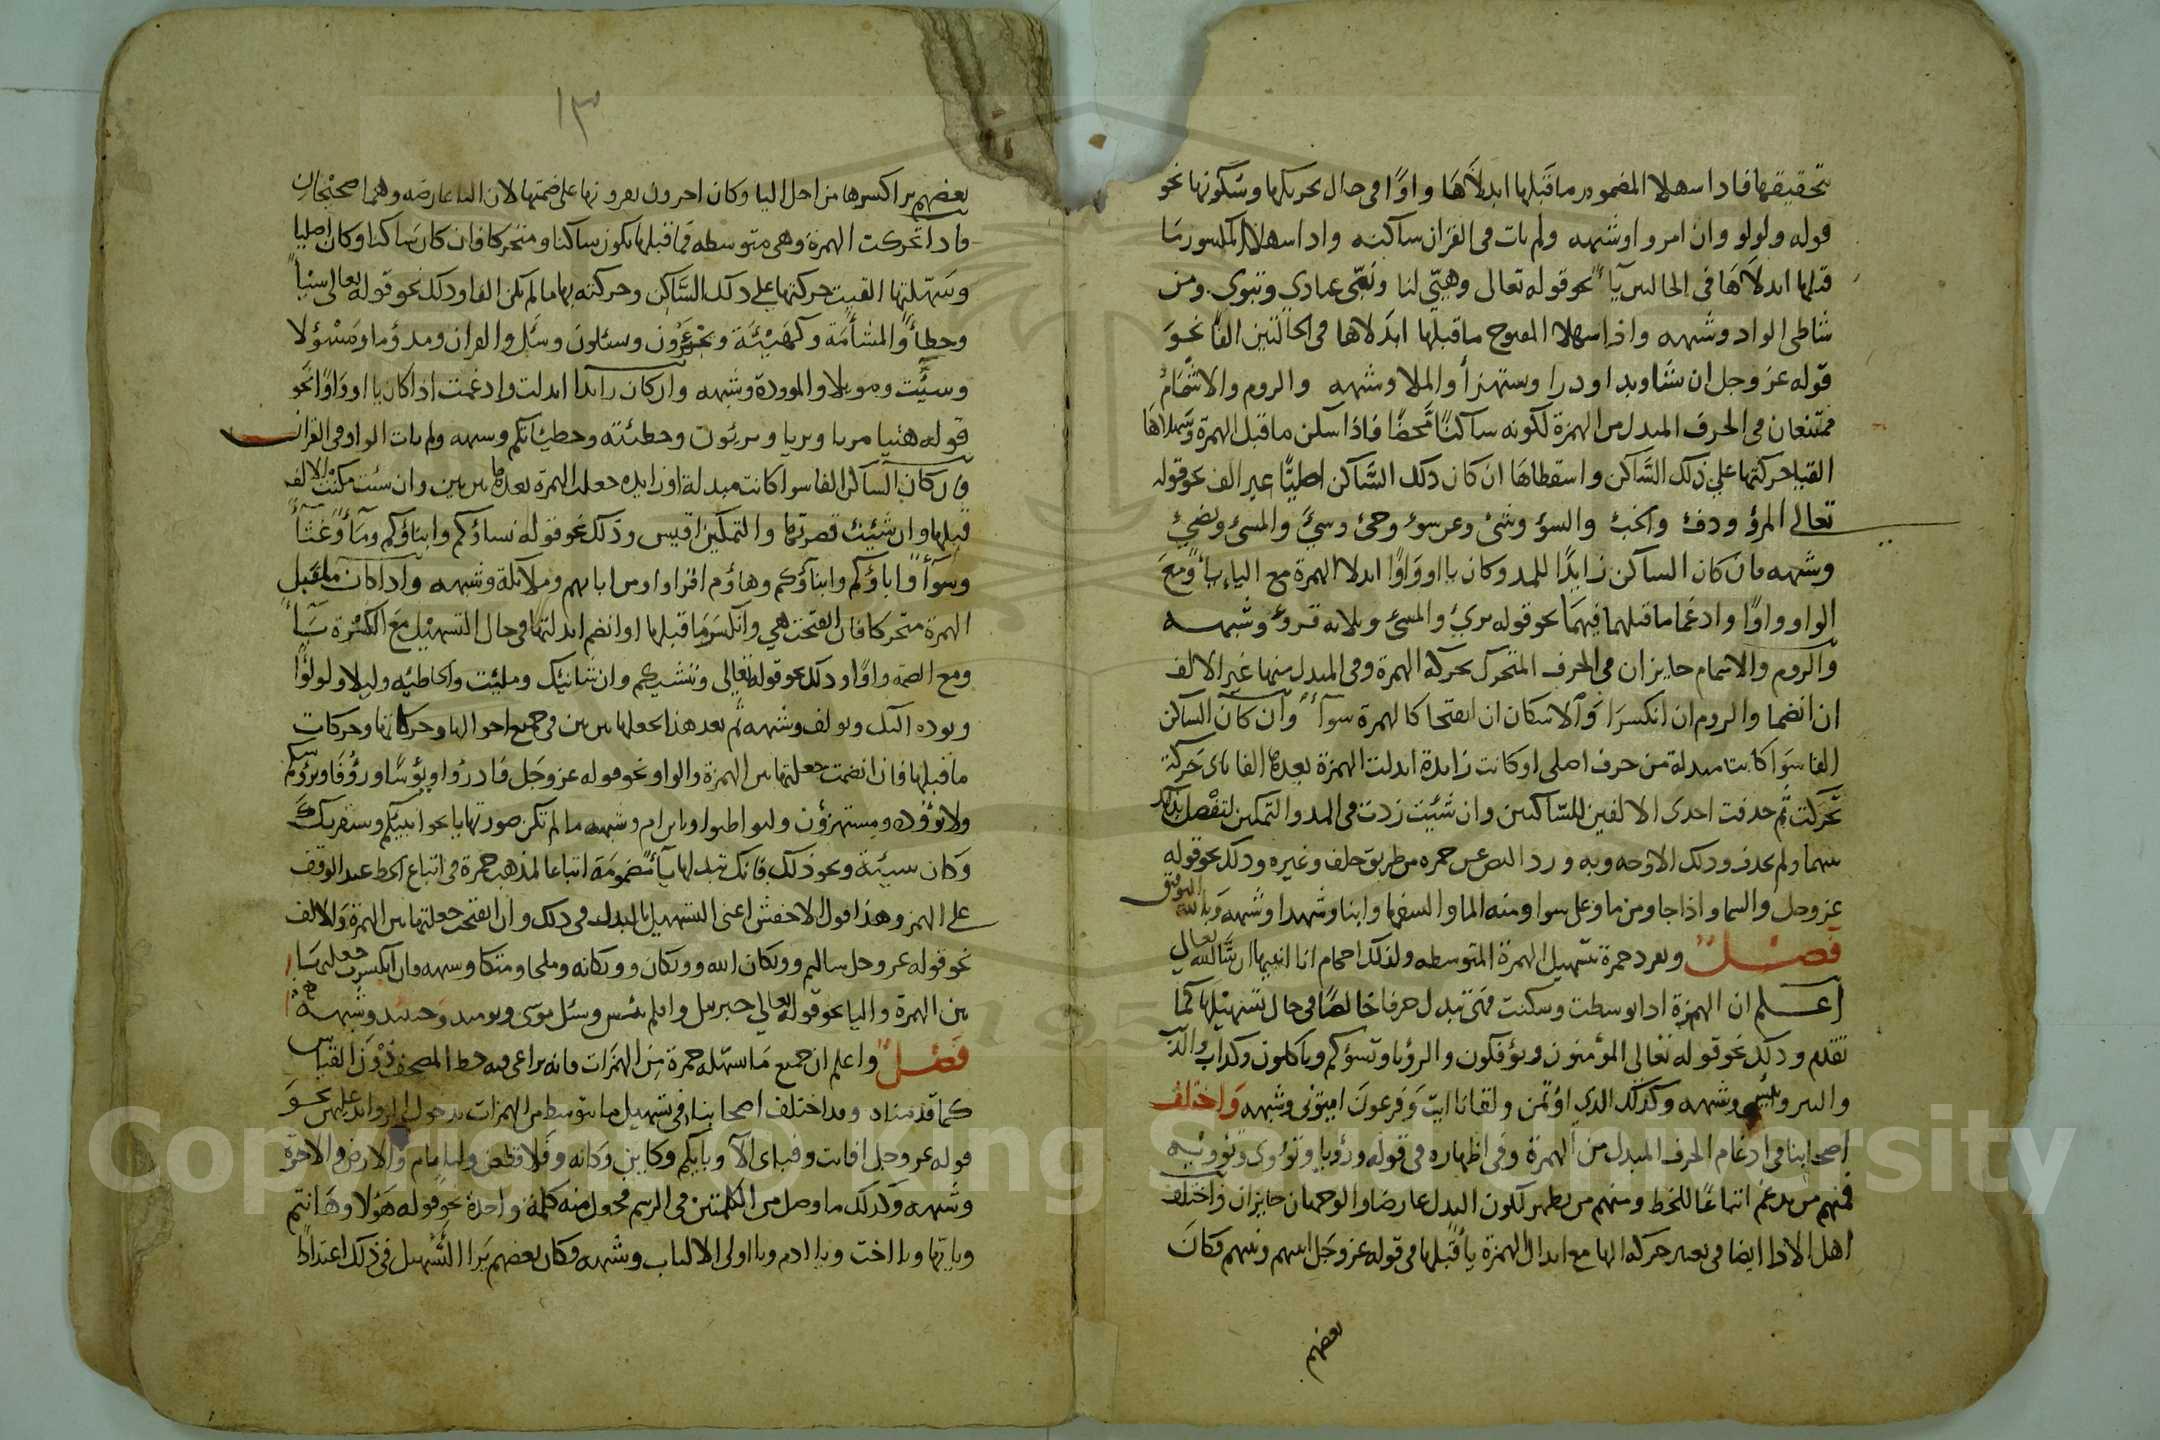 تحقيقها فاذا سهلا المضموم ما قبلها ابدلاها واوا في حال تحريكها وسكونها نحو
قوله ولولو وان امرو وشبهه ولم يات في القران ساكنه واذا سهلا المكسور ما
قبلها ابدلاها في الحالين ياء نحو قوله تعالى وهيي لنا ونبي عبادي وتبوي ومن
شاطي الواد وشبهه واذا سهلا المفتوح ما قبلها ابدلاها في الحالتين الفا نحو
قوله عز وجل ان نشا وبدا وذرا ويستهزأ والملا وشبهه والروم والاشمام
ممتنعان في الحرف المبدل من الهمزة لكونه ساكنا محضا فاذا سكن ما قبل الهمزة وسهلاها
القيا حركتها على ذلك الساكن واسقطاها ان كان ذلك الساكن اصليا غير الف نحو قوله
تعالى المرؤ ودفء والخبء والسوء وشيء وعن سوء وجيء وسيء والمسيء ويضيء
وشبهه فان كان الساكن زايدا للمد وكان يا او واوا ابدلا الهمزة مع الياء ياء ومع
الواو واوا وادغما ما قبلهما فيهما نحو قوله بريء والنسيء وثلاثة قروء وشبهه
والروم والاشمام جايزان في الحرف المتحرك بحركة الهمزة وفي المبدل منها غير الالف
ان انضما والروم ان انكسرا والاسكان ان انفتحا كالهمزة سواء وان كان الساكن
الفا سوا كانت مبدلة من حرف اصلي او كانت زايدة ابدلت الهمزة بعدها الفا باي حركة
تحركت ثم حذفت احدى الالفين للساكنين وان شئت زدت في المد والتمكين لتفصل بذلك
بينهما ولم تحذف وذلك الاوجه وبه ورد النص عن حمزه من طريق خلف وغيره وذلك نحو قوله
عز وجل والسما واذا جا ومن ما وعلى سوا ومنه الما والسفها وابنا وشهدا وشبهه وبالله التوفيق
فصل وتفرد حمزة بتسهيل الهمزة المتوسطه ولذلك احكام انا ابينها ان شا الله تعالى
اعلم ان الهمزة اذا توسطت وسكنت فهي تبدل حرفا خالصا في حال تسهيلها كما
تقدم وذلك نحو قوله تعالى المؤمنون ويؤفكون والرؤيا وتسؤكم وياكلون وكداب والذيب
والبير وبئس وشبهه وكذلك الذي اؤتمن ولقانا ايت وفرعون ايتوني وشبهه واختلف
اصحابنا في ادغام الحرف المبدل من الهمزة وفي اظهاره في قوله ورؤيا وتؤوي وتؤويه
فمنهم من يدغم اتباعا للخط ومنهم من يظهر لكون البدل عارضا والوجهان جايزان واختلف
اهل الادا ايضا في تغيير حركة الها مع ابدال الهمزة يا قبلها في قوله عز وجل انبيهم ونبيهم فكان
بعضهم
١٣
بعضهم يرا كسرها من اجل اليا وكان اخرون يقرونها على ضمتها لان اليا عارضه وهما صحيحان
فاذا تحركت الهمزة وهي متوسطه فما قبلها يكون ساكنا ومتحركا فان كان ساكنا وكان اصليا
وسهلتها القيت حركتها على ذلك الساكن وحركته بها ما لم يكن الفا وذلك نحو قوله تعالى شيا
وخطأ والمشأمة وكهيئة وتجئرون ويسئلون وسئل والقران ومذؤما ومسؤلا
وسيئت وموئلا والموودة وشبهه وان كان زايدا ابدلت وادغمت اذا كان يا او واوا نحو
قوله هنيا مريا وبريا وبريئون وخطيئته وخطيئاتكم وشبهه ولم يات الواو في القران
وان كان الساكن الفا سوا كانت مبدلة او زايده جعلت الهمزة بعدها بين بين وان شئت مكنت الالف
قبلها وان شئت قصرتها والتمكين اقيس وذلك نحو قوله نساؤكم وابناؤكم وماء وغثاء
وسواء واباؤكم وابناؤكم وهاؤم اقراوا ومن ابايهم وملائكة وشبهه واذا كان ما قبل
الهمزة متحركا فان انفتحت هي وانكسر ما قبلها او انضم ابدلتها في حال التسهيل مع الكسرة ياء
ومع الضمه واوا وذلك نحو قوله تعالى وننشيكم وان شانيك وملئت والخاطيه وليلا ولولؤا
ويوده اليك ويولف وشبهه ثم بعد هذا تجعلها بين بين في جميع احوالها وحركاتها وحركات
ما قبلها فان انضمت جعلتها بين الهمزة والواو نحو قوله عز وجل فادرؤا ويؤسا ورؤف وبرؤسكم
ولا يؤوده ومستهزؤن وليواطيوا ويا بن ام وشبهه ما لم تكن صورتها يا نحو انبيكم وسنقريك
وكان سيئه ونحو ذلك فانك تبدلها ياء مضمومة اتباعا لمذهب حمزة في اتباع الخط عند الوقف
على الهمز وهذا قول الاخفش اعني التسهيل بالبدل في ذلك وان انفتحت جعلتها بين الهمزة والالف
نحو قوله عز وجل سالهم وويكان الله وويكان وويكانه وملجا ومتكا وشبهه وان انكسرت جعلتها
بين الهمزة واليا نحو قوله تعالى جبريل وافلم يئس وسئل موسى ويوميذ وحينئذ وشبهه
فصل واعلم ان جميع ما سهله حمزة من الهمزات فانه يراعى فيه خط المصحف دون القياس
كما قدمناه وقد اختلف اصحابنا في تسهيل ما يتوسط من الهمزات بدخول الزوايد عليهن نحو
قوله عز وجل افانت وفباي الآ وبايكم وكاين وكانه وفلاقطعن ولبامام والارض والاخرة
وشبهه وكذلك ما وصل من الكلمتين في الرسم فجعل منه كلمة واحدة نحو قوله هؤلا وهانتم
ويايها ويا اخت ويا ادم ويا اولي الالباب وشبهه فكان بعضهم يرا التسهيل في ذلك اعتدادا
Copyright © King Saud University